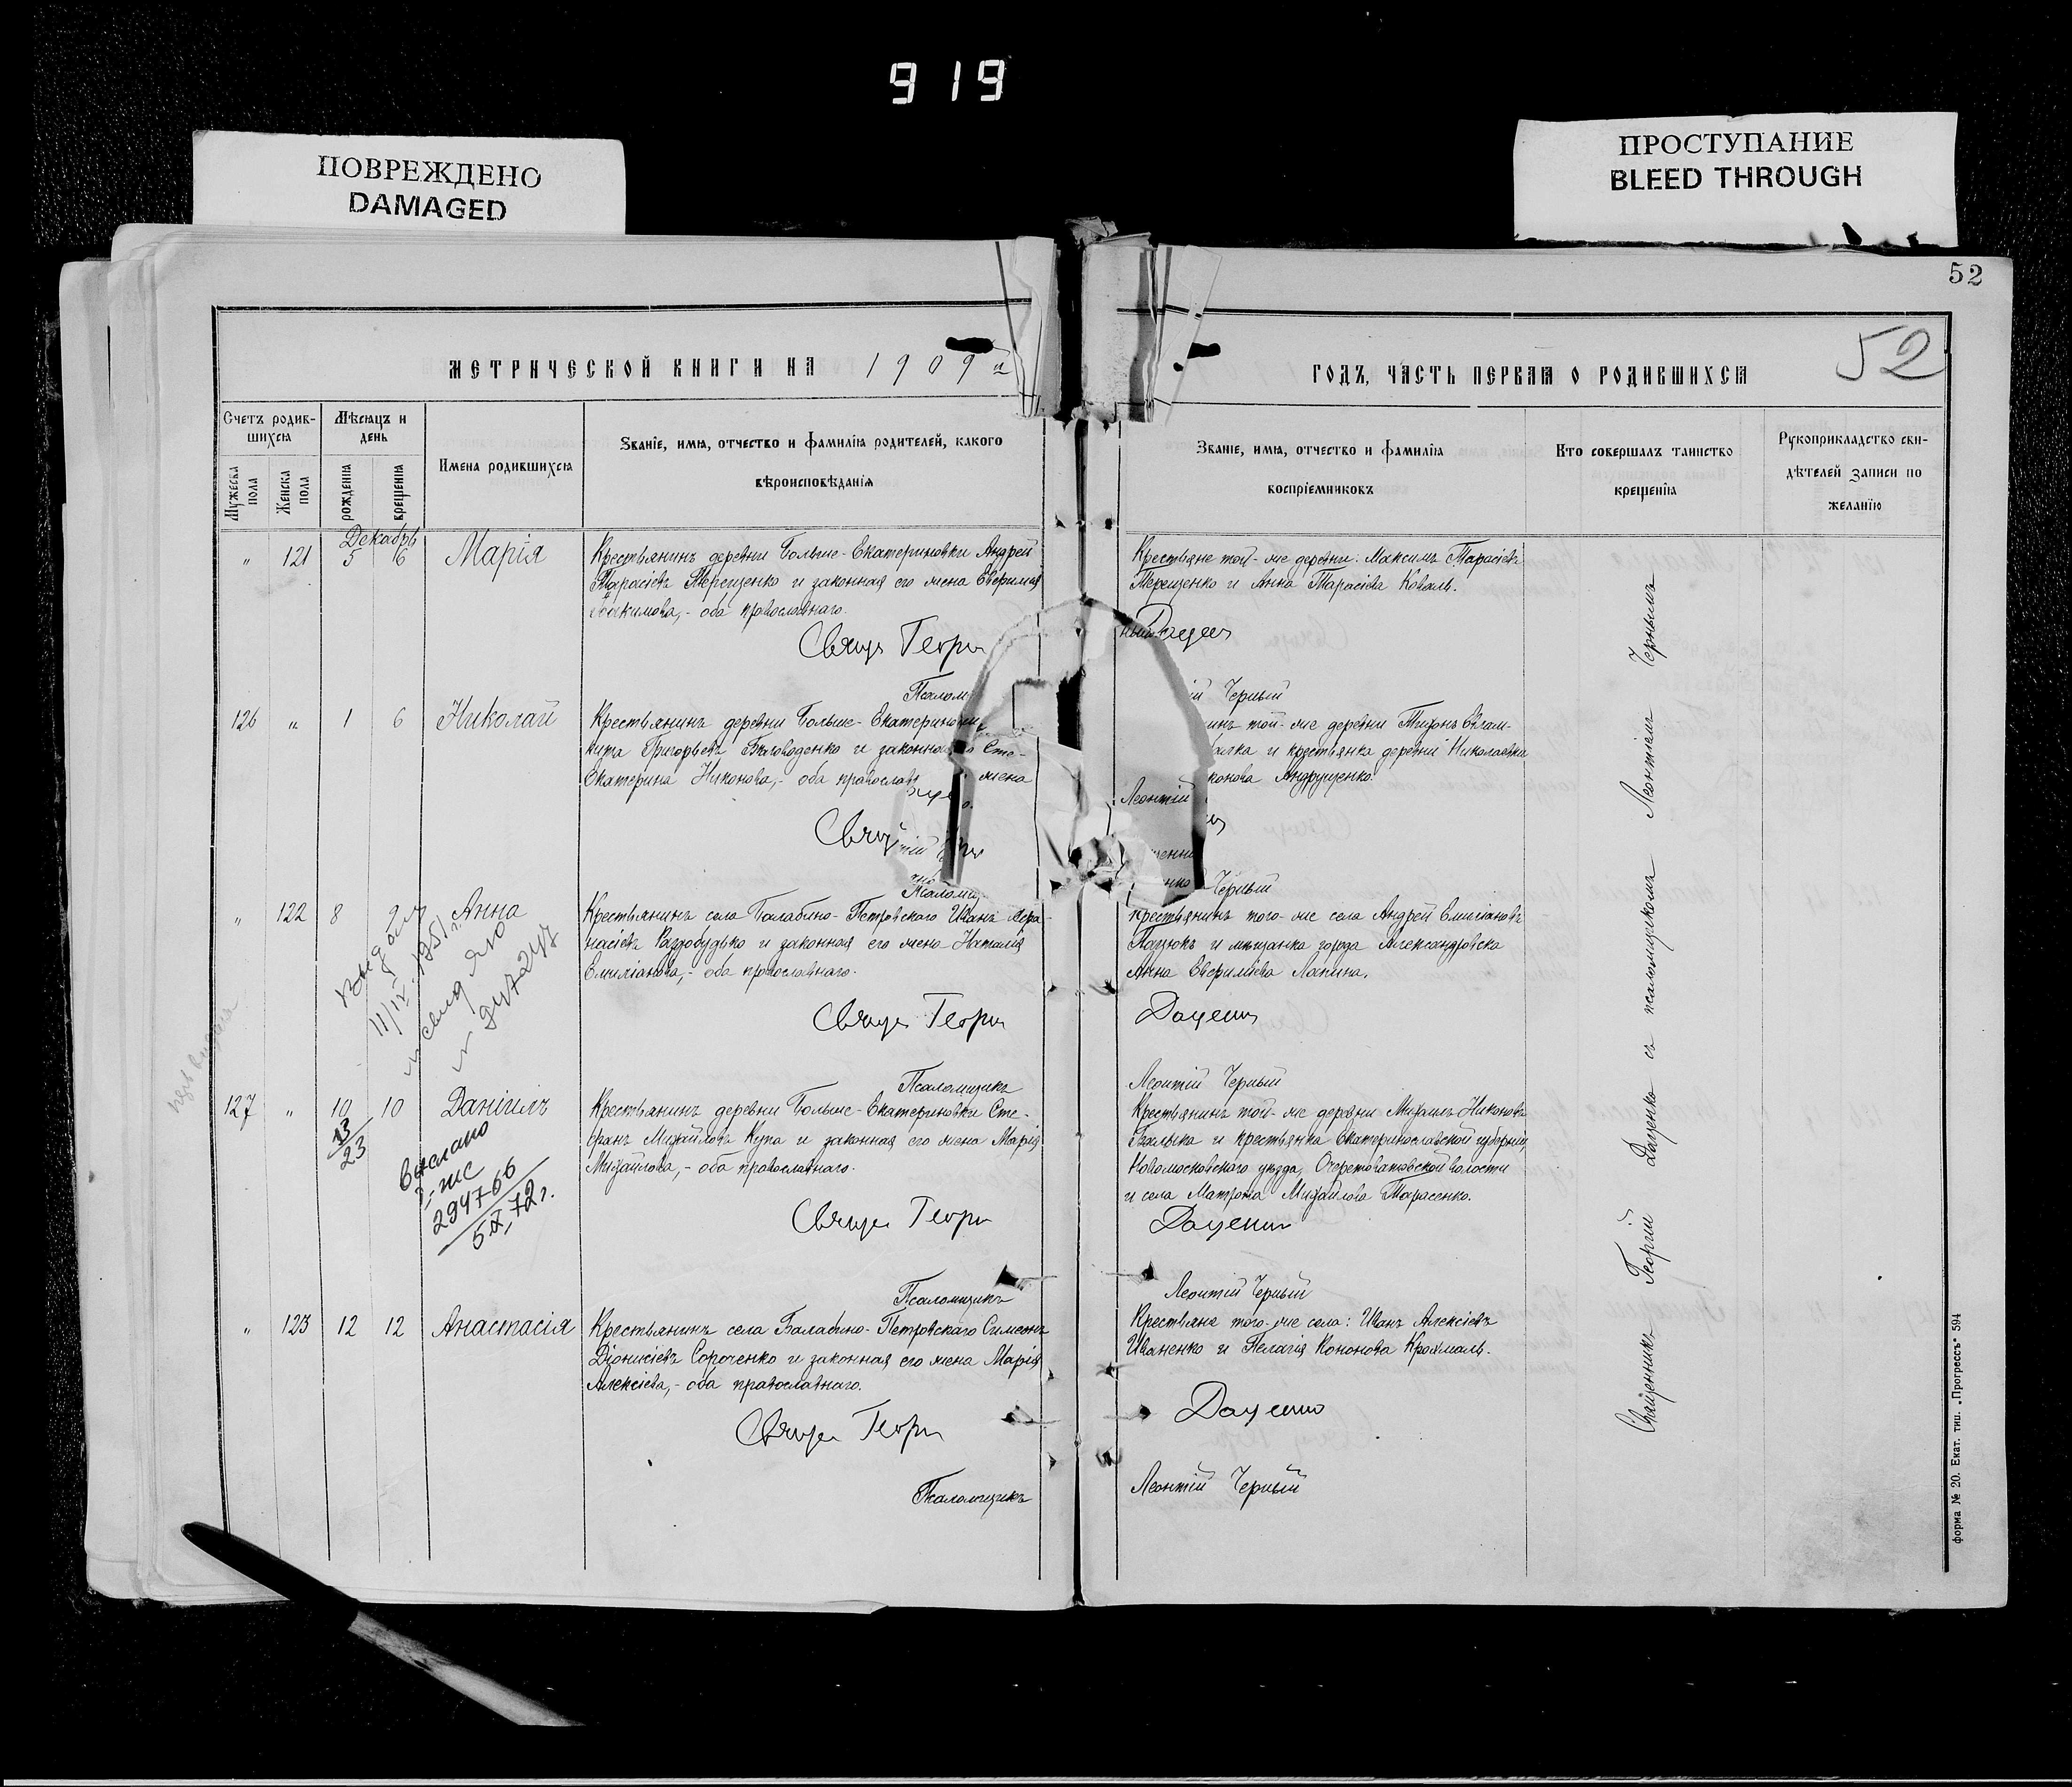 919
ПОВРЕЖДЕНО
DAMAGED
ПРОСТУПАНИЕ
BLEED THROUGH
52
52
МЕТРИЧЕСКОЙ КНИГИ НА 1909й
ГОДЪ, ЧАСТЬ ПЕРВАЯ О РОДИВШИХСЯ
Счетъ родив-
шихся
Мужеска пола
Женска пола
Мѣсяцъ и
день
рожденія
крещенія
Имена родившихся
Званіе, имя, отчество и фамилія родителей, какого
вѣроисповѣданія
Званіе, имя, отчество и фамилія
воспріемниковъ
Кто совершалъ таинство
крещенія
Рукоприкладство сви-
дѣтелей записи по
желанію
Декабрь
„ 121 5 6 Марія
Крестьянинъ деревни Больше-Екатериновки Андрей
Тарасіевъ Терещенко и законная его жена Евфимія
Іоакимова,- оба православнаго.
Свящ Георг
Крестьяне той-же деревни: Максимъ Тарасіевъ
Терещенко и Анна Тарасіева Коваль.
Даценко
Псалом
ій Черный
126 „ 1 6 Николай
Крестьянинъ деревни Больше-Екатеринов
Григорьевъ Бѣловоденко и законная
Сте-
Екатерина Никонова,- оба православ
жена
Свящ
инъ той-же деревни Тихонъ Евгам-
и крестьянка деревни Николаевки
конова Андрущенко.
Леонтій
Псалом
Черный
„ 122 8 Анна
Крестьянинъ села Балабино-Петровскаго Иванъ Афа-
насіевъ Раздобудько и законная его жена Наталія
Емиліанова,- оба православнаго.
Свящ Георги
Крестьянинъ того-же села Андрей Емиліановъ
Пацюкъ и мѣщанка города Александровска
Анна Евфиміева Лапина.
Даценко
11/IX 1951 г.
Псаломщикъ
Леонтій Черный
127 „ 10 10 Даніилъ
13
23
выслано
294766
5 X, 72 г.
Крестьянинъ деревни Больше-Екатериновки Сте-
фанъ Михайловъ Купа и законная его жена Марія
Михайлова,- оба православнаго.
Свящ Георги
Крестьянинъ той-же деревни Михаилъ Никоновъ
и крестьянка Екатеринославской губерніи,
Новомосковскаго уѣзда, Очеретоватовской волости
и села Матрона Михайлова Тарасенко.
Даценко
Псаломщикъ
Леонтій Черный
„ 123 12 12 Анастасія
Крестьянинъ села Балабино-Петровскаго Симеонъ
Діонисіевъ Сороченко и законная его жена Марія
Алексіева,- оба православнаго.
Свящ Георги
Крестьяне того-же села: Иванъ Алексіевъ
Иваненко и Пелагія Кононова Крохмаль.
Даценко
Псаломщикъ
Леонтій Черный
Священникъ Георгій Даценко съ псаломщикомъ Леонтіемъ Чернымъ
форма № 20. Екат. тип. „Прогрессъ“ 594